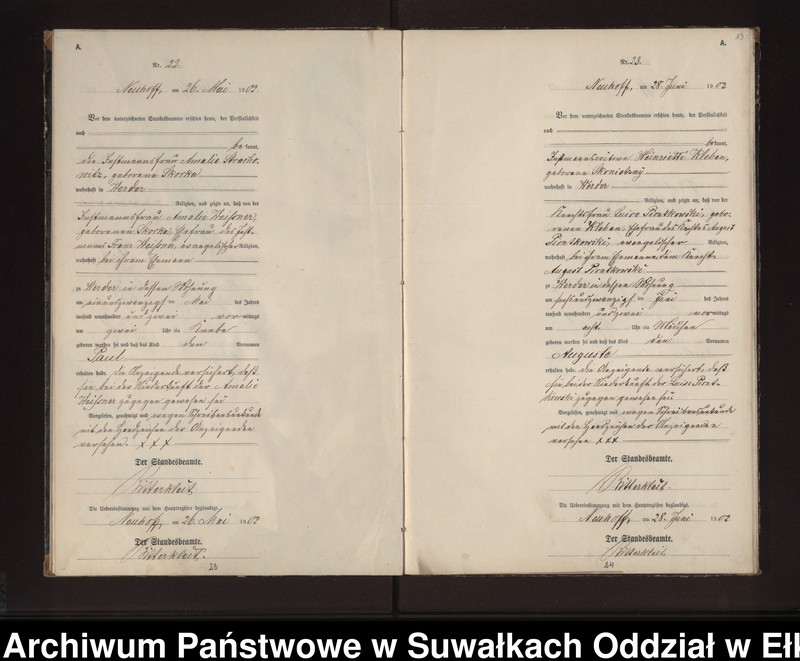 A.
Nr. 22
Neuhoff, am 26. Mai 1902.
Vor dem unterzeichneten Standesbeamten erschien heute, der Persönlichkeit
nach
be kannt,
die Instmannsfrau Amalie Stracho-
nitz, geborene Skorka
wohnhaft in Werder
Religion, und zeigte an, daß von der
Instmannsfrau Amalie Heißner,
geborenen Skorka, Ehefrau des Inst-
manns Franz Heißner, evangelischer Religion,
wohnhaft bei ihrem Ehemann
zu Werder in dessen Wohnung
am einundzwanzigsten Mai des Jahres
tausend neunhundert und zwei vor mittags
um zwei Uhr ein Knabe
geboren worden sei und daß das Kind den Vornamen
Paul
erhalten habe. Die Anzeigende versichert, daß
sie bei der Niederkunft der Amalie
Heißner zugegen gewesen sei
Vorgelesen, genehmigt und wegen Schreibensunkunde
mit den Handzeichen der Anzeigenden
versehen. x x x
Der Standesbeamte.
Ritterkleit.
Die Uebereinstimmung mit dem Hauptregister beglaubigt.
Neuhoff, am 26. Mai 1902
Der Standesbeamte.
Ritterkleit.
23
13
A.
Nr. 23.
Neuhoff, am 28. Juni 1902
Vor dem unterzeichneten Standesbeamten erschien heute, der Persönlichkeit
nach
be kannt,
Instmannswitwe Heinriette Kleban,
geborene Skonietzny
wohnhaft in Werder
Religion, und zeigte an, daß von der
Knechtsfrau Luise Piontkowski, gebo-
renen Kleban, Ehefrau des Knechtes August
Piontkowski, evangelischer Religion,
wohnhaft bei ihrem Ehemanne dem Knecht
August Piontkowski
zu Werder in dessen Wohnung
am sechsundzwanzigsten Juni des Jahres
tausend neunhundert und zwei vor mittags
um acht Uhr ein Mädchen
geboren worden sei und daß das Kind den Vornamen
Auguste
erhalten habe. Die Anzeigende versichert, daß
sie bei der Niederkunft der Luise Piont-
kowski zugegen gewesen sei
Vorgelesen, genehmigt und wegen Schreibensunkunde
mit den Handzeichen der Anzeigenden
versehen x x x
Der Standesbeamte.
Ritterkleit.
Die Uebereinstimmung mit dem Hauptregister beglaubigt.
Neuhoff, am 28. Juni 1902
Der Standesbeamte.
Ritterkleit.
24
Archiwum Państwowe w Suwałkach Oddział w Ełk